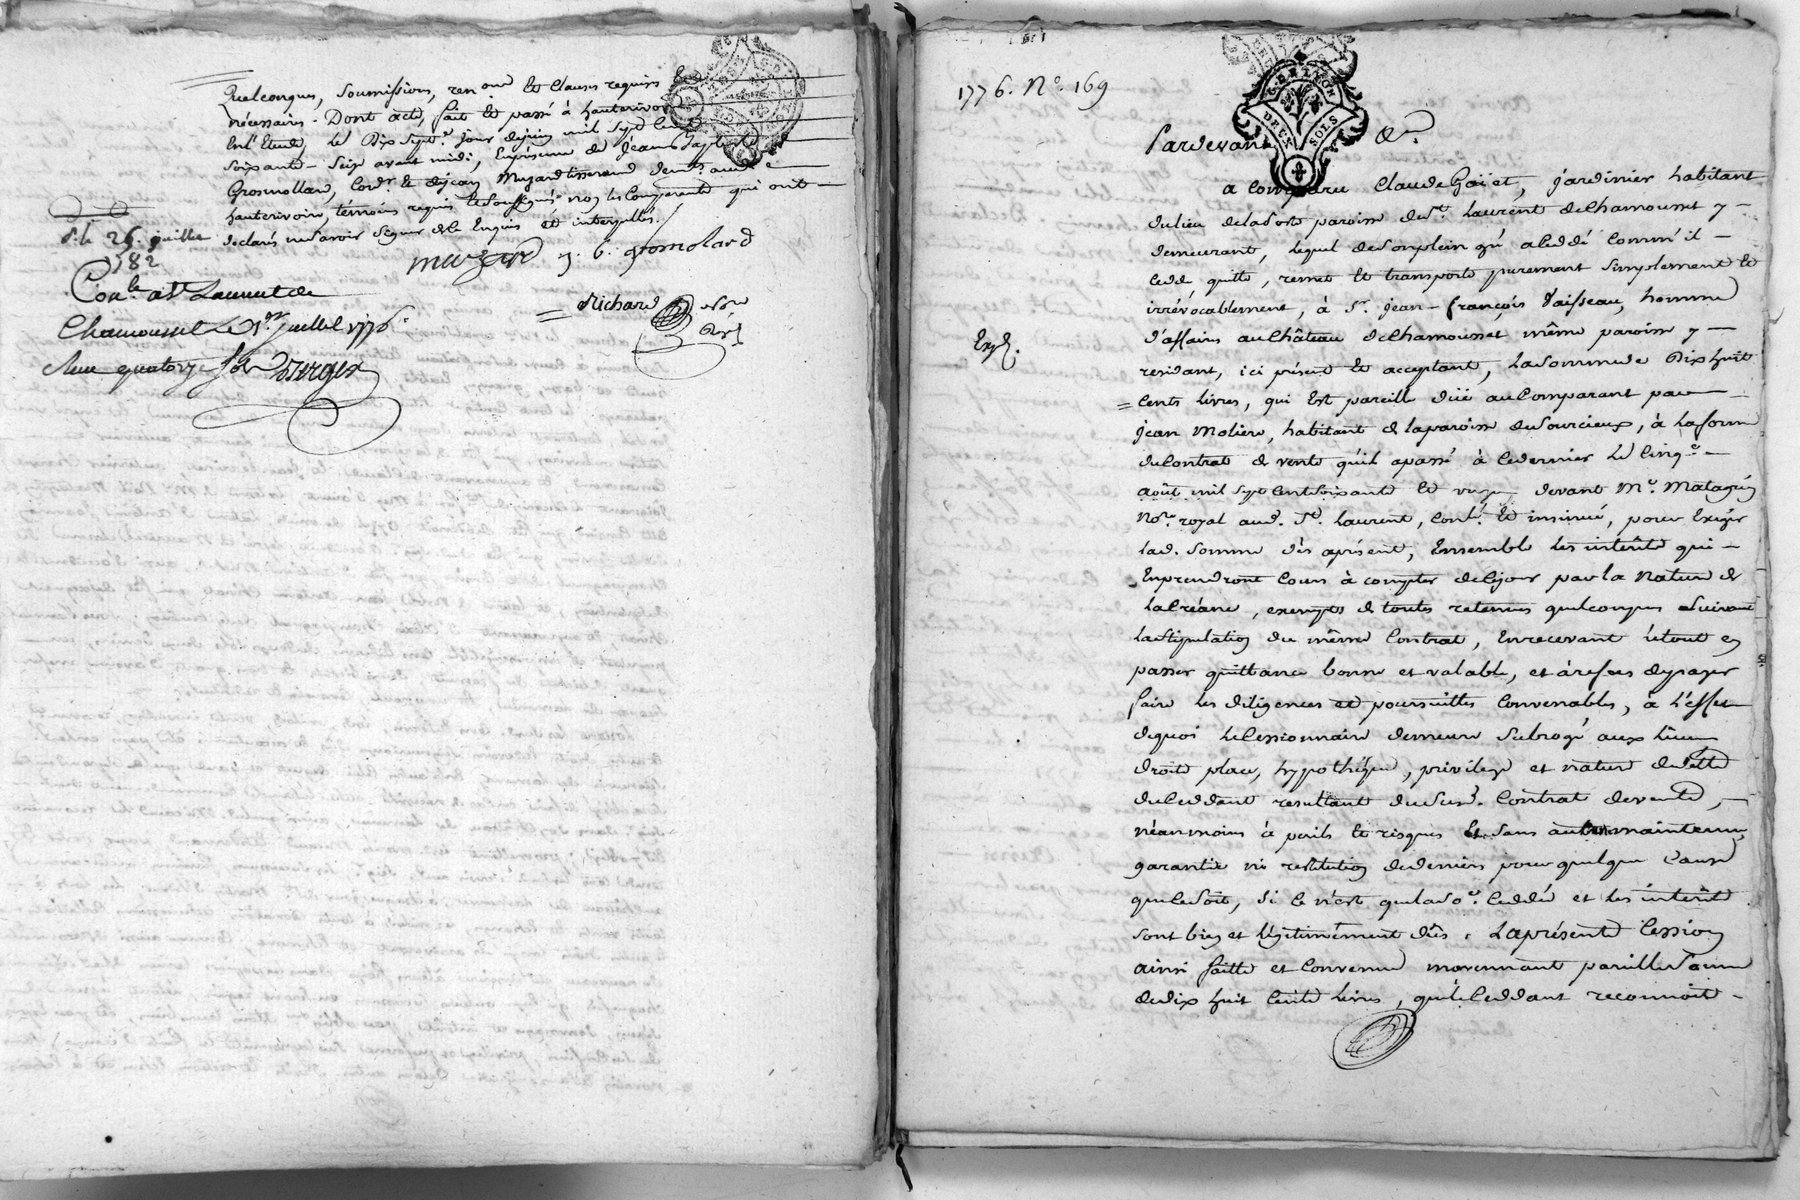 Quelconques, soumissions, ren.on et Clauses requises et
nécessaires. Dont acte, fait et passé à hauterivoire
En l'Etude, le Dix sept.e jour de juin mil sept cent
soixante-seize avant midi, En présence de jean Baptiste
Grosmollard, Cord.r et de jean Mugard tisserand dem.t aud.
hauterivoire, témoins requis et soussignés non les Comparants qui ont
déclarés ne savoir signer de le Enquis et interpellés.
mugard j. b. gromolard
Richard No.re
Roy.l
d. le 25. juillet
1782
Con.lé a St Laurent de
Chamousset Le 1.er juillet 1776.
Reçu quatorze sols Berger
1776. N.o 169
G. DE LYON
DEUX SOLS
Pardevant &.a
a Comparu Claude Goïet, jardinier habitant
du lieu de la poste paroisse de S.t Laurent de Chamousset y
demeurant, lequel de son plein gré a cédé comm'il
cede quitte, remet et transporte purement simplement et
irrévocablement, à S.r jean-françois Vaisseau, homme
d'affaires au Château de Chamousset même paroisse y
Exp.
residant, ici présent et acceptant, la somme de Dix huit
Cents livres, qui Est pareille düe au Comparant par
jean Moliere, habitant de la paroisse de Sourcieux, à la forme
du Contrat de vente qu'il a passé à ce dernier le Cinq.e
août mil sept cent soixante et onze devant M.e Matagrin
No.re royal aud. S.t Laurent, Con.lé et insinué, pour Exiger
lad. somme dès aprésent, Ensemble les intérêts qui
En prendront Cours à compter de ce jour par la Nature de
la Créance, exempts de toutes retenues quelconques suivant
la stipulation du même Contrat, En recevant le tout en
passer quittance bonne et valable, et à refus de payer
faire les diligences et poursuittes Convenables, à l'effet
de quoi le Cessionnaire demeure subrogé aux lieu
droits place, hypothéque, privilege et nature de dette
du Ceddant resultant dud. Contrat de vente,
néanmoins à perils et risques et sans autre maintenue
garantie ni restitution de deniers pour quelque Cause
que ce soit, si ce n'est que la so.e ceddée et les intérêts
sont bien et légitimement dûs. La présente Cession
ainsi faitte et Convenue moyennant pareille somme
de dix huit Cents livres, que le Ceddant reconnoit